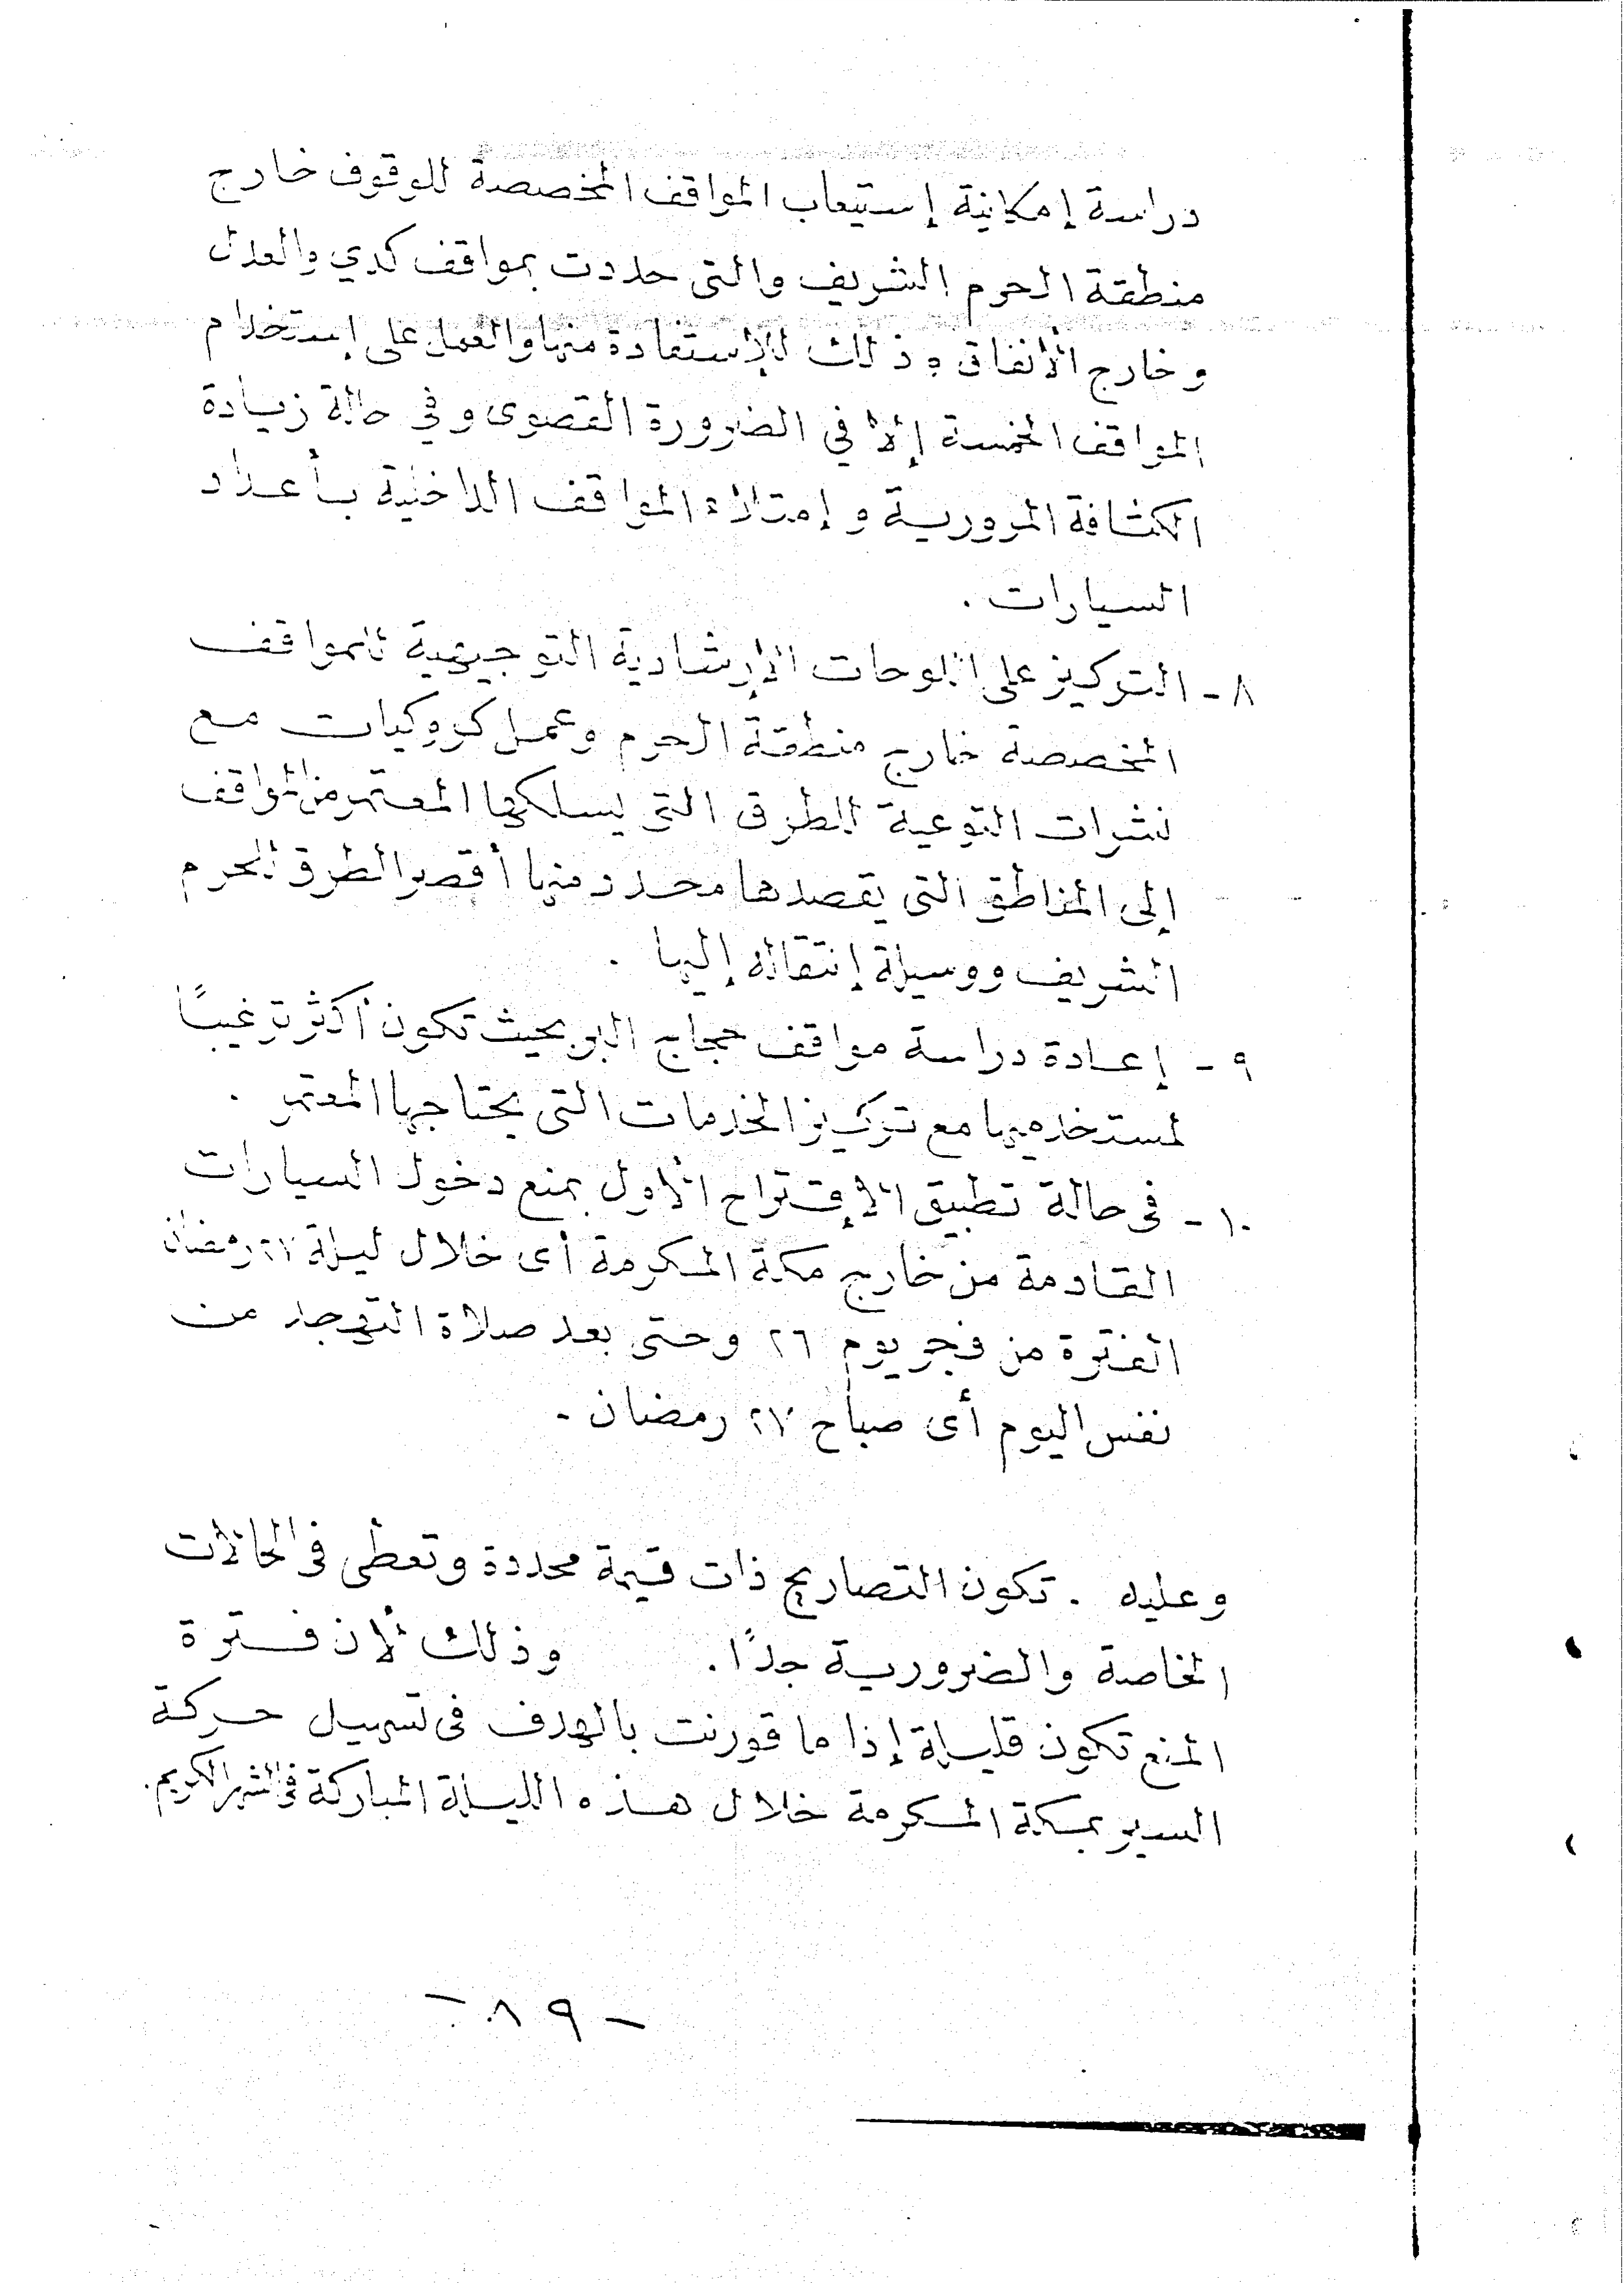 دراسة إمكانية إستيعاب المواقف المخصصة للوقوف خارج
منطقة الحرم الشريف والتى حددت بمواقف كدي والعدل
وخارج الأنفاق وذلك للإستفادة منها والعمل على إستخدام
المواقف الخمسة إلا في الضرورة القصوى وفي حالة زيادة
الكثافة المرورية وإمتلاء المواقف الداخلية بأعداد
السيارات .
٨ - التركيز على اللوحات الإرشادية التوجيهية للمواقف
المخصصة خارج منطقة الحرم وعمل كروكيات مع
نشرات التوعية للطرق التى يسلكها المعتمر من المواقف
إلى المناطق التى يقصدها محدد منها أقصر الطرق للحرم
الشريف ووسيلة إنتقاله إليها .
٩ - إعادة دراسة مواقف حجاج البر بحيث تكون أكثر ترغيبًا
لمستخدميها مع تركيز الخدمات التى يحتاجها المعتمر .
١٠ - فى حالة تطبيق الإقتراح الأول بمنع دخول السيارات
القادمة من خارج مكة المكرمة أى خلال ليلة ٢٧ رمضان
الفترة من فجر يوم ٢٦ وحتى بعد صلاة التهجد من
نفس اليوم أى صباح ٢٧ رمضان -
وعليه . تكون التصاريح ذات قيمة محددة وتعطى فى الحالات
الخاصة والضرورية جدًا. وذلك لأن فترة
المنع تكون قليلة إذا ما قورنت بالهدف فى تسهيل حركة
السير بمكة المكرمة خلال هذه الليلة المباركة فى الشهر الكريم.
- ٨٩ -